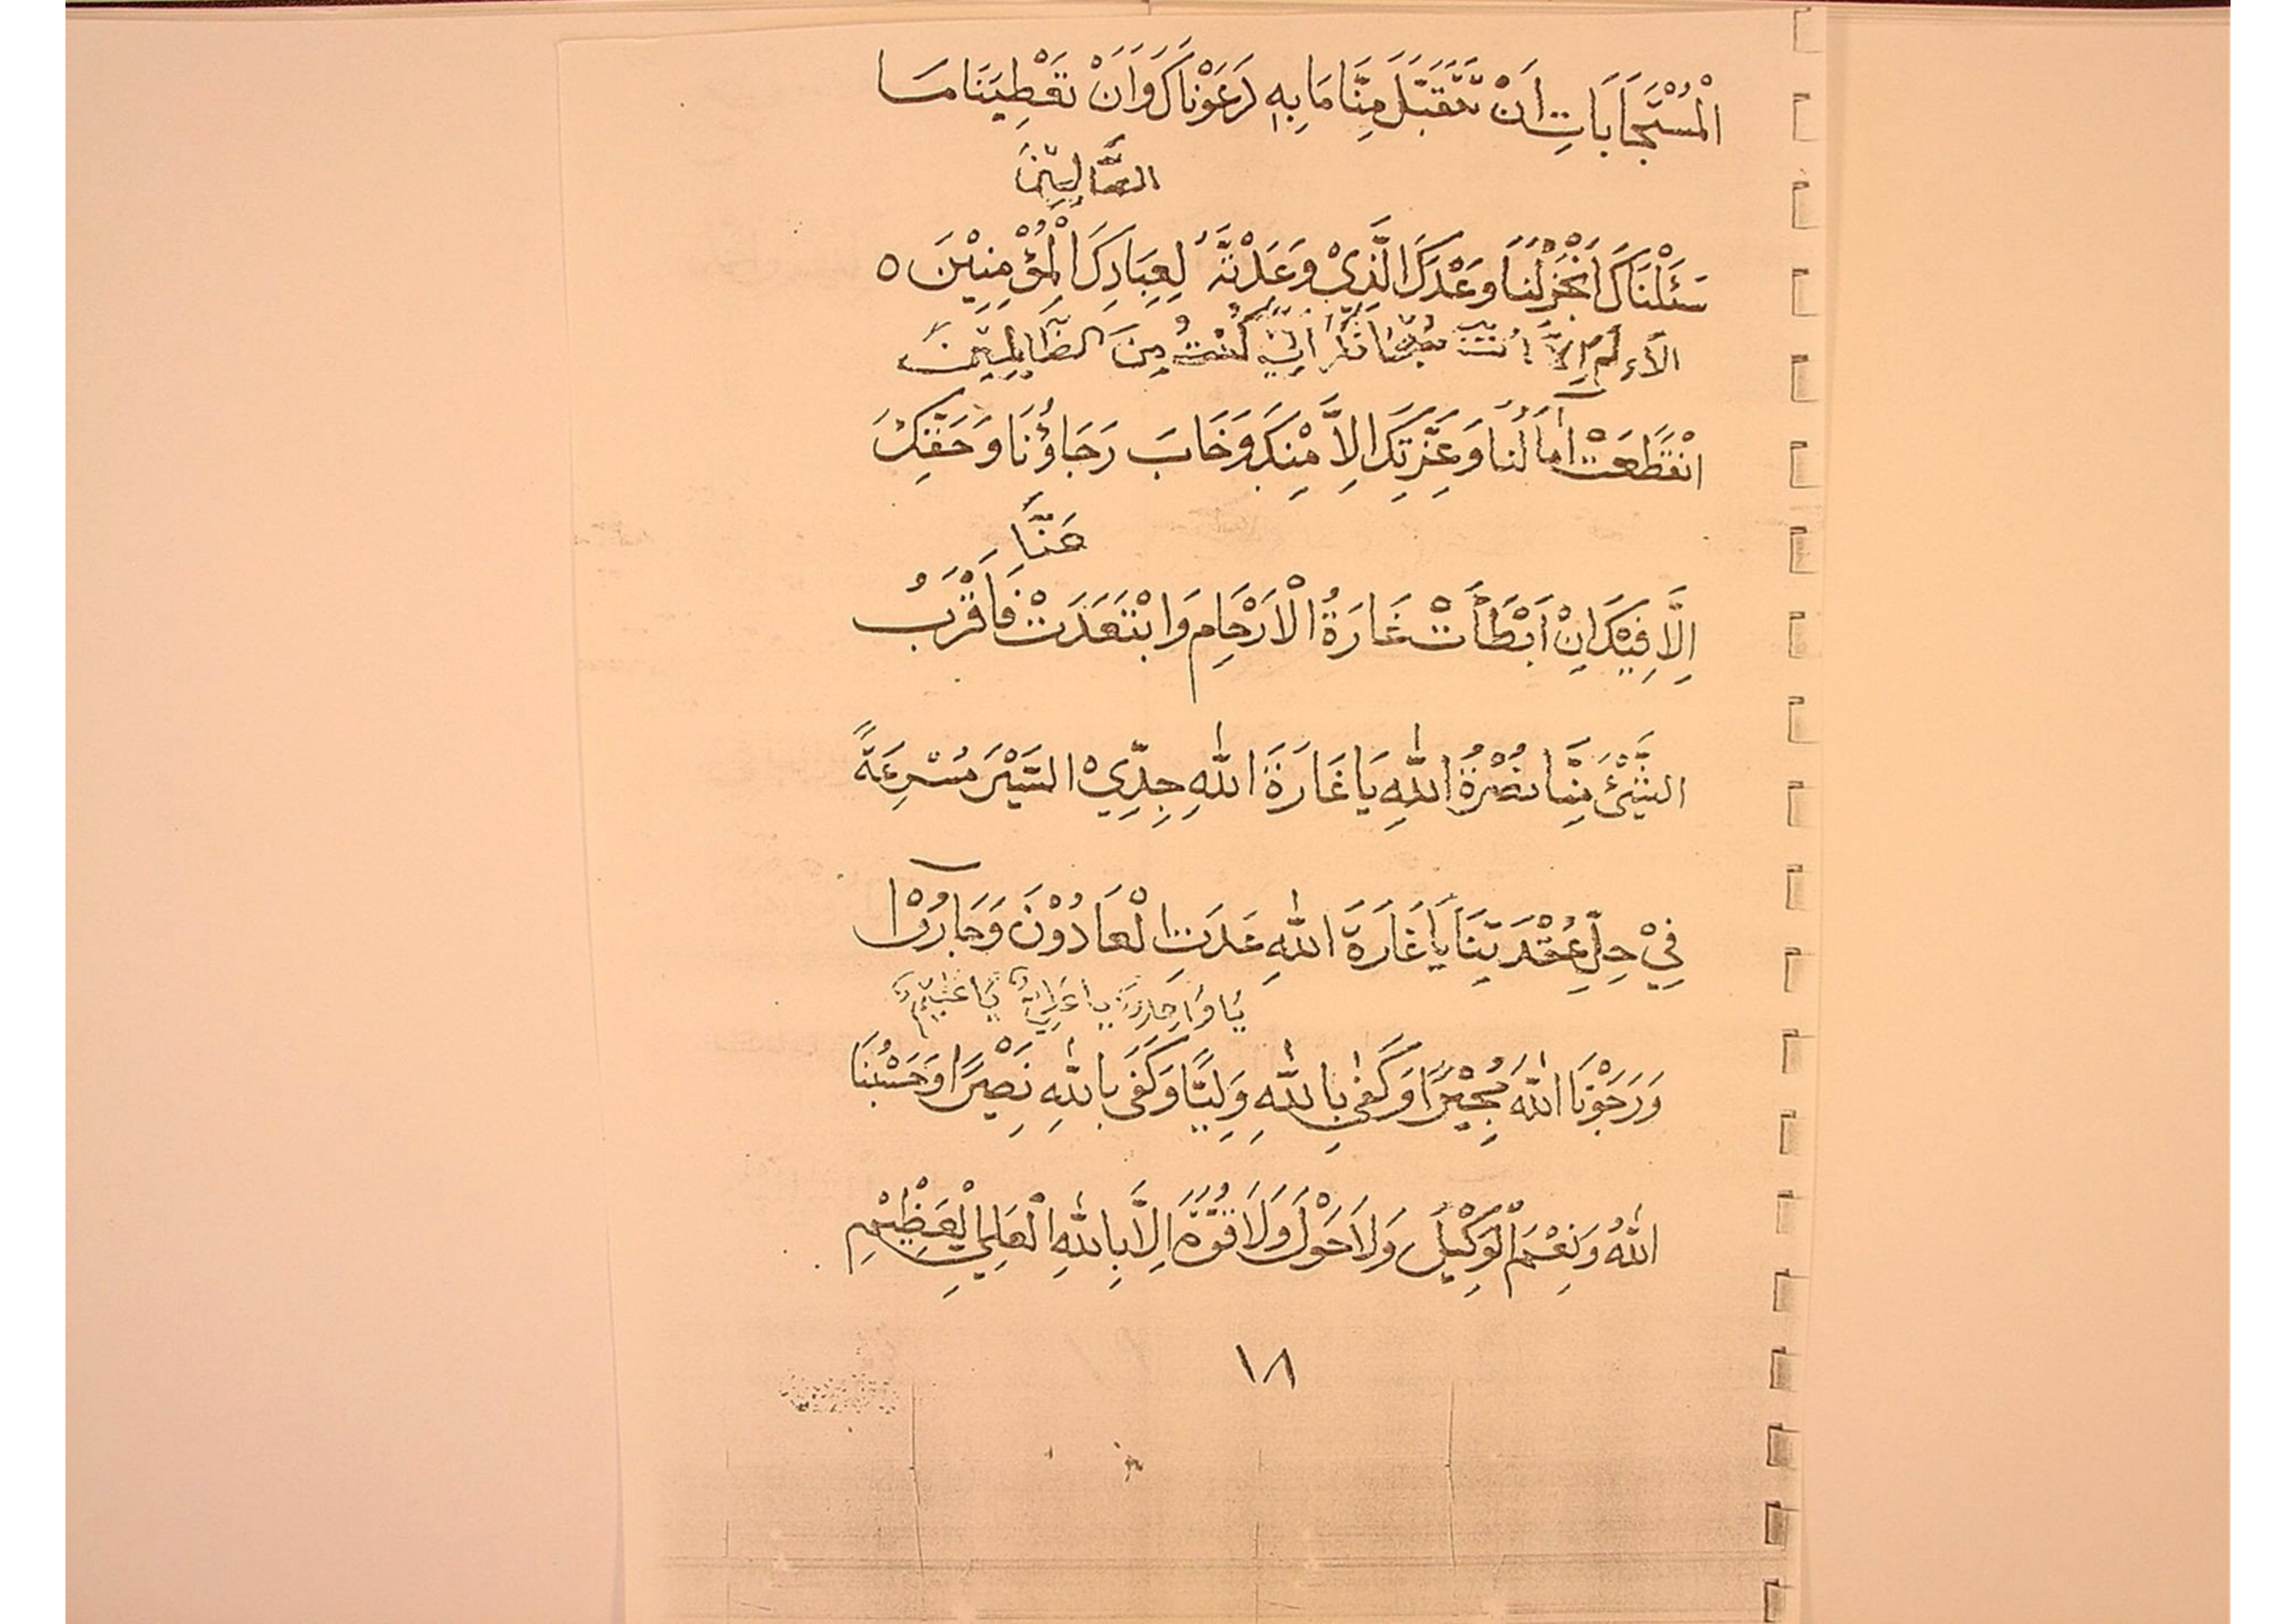 الْمُسْتَجَابَاتِ اَنْ تَتَقَبَّلَ مِنَّا مَا بِهِ دَعَوْنَاكَ وَاَنْ تَقْطِيَنَا مَا
سَئَلْنَاكَ اَنْجِزْلَنَا وَعْدَكَ الَّذِيْ وَعَدْتَّهُ لِعِبَادِكَ الْمُؤْمِنِيْنَ ٥
اِلاَّ اَنْتَ كُنْتُ مِنَ الظَّالِمِيْنَ
انْقَطَعَتْ آمَالُنَا وَعِزَّتِكَ اِلاَّ مِنْكَ وَخَابَ رَجَاؤُنَا وَحَقِّكَ
عَنَّا
اِلَّا فِيْكَ اِنْ اَبْطَأَتْ غَارَةُ الْاَرْحَامِ وَابْتَعَدَتْ فَاَقْرَبُ
الشَّيْئِ مِنَّا نُصْرَةُ اللّٰهِ يَا غَارَةَ اللّٰهِ جِدِّيْ السَّيْرَ مُسْرِعَةً
فِيْ حِلِّ عُقْدَتِنَا يَا غَارَةَ اللّٰهِ عَدَتِ الْعَادُوْنَ وَجَارُوْا
وَرَجَوْنَا اللّٰهَ مُجِيْرًا وَكَفٰى بِاللّٰهِ وَلِيًّا وَكَفَى بِاللّٰهِ نَصِيْرًا وَحَسْبُنَا
اللّٰهُ وَنِعْمَ الْوَكِيْلُ وَلَا حَوْلَ وَلَا قُوَّةَ اِلَّا بِاللّٰهِ الْعَلِيِ الْعَظِيْمِ
١٨